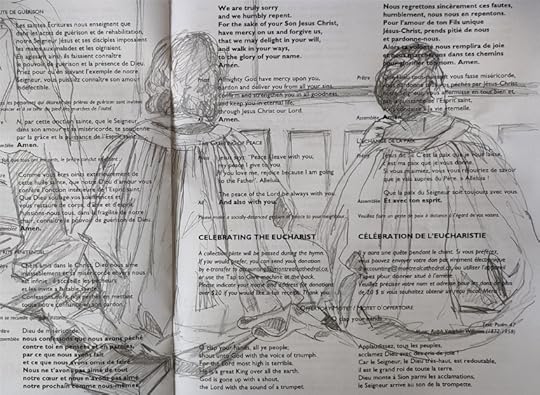 TE DE GUÉRISON
Les Saintes Écritures nous enseignent que
dans les actes de guérison et de réhabilitation,
notre Seigneur Jésus et ses disciples imposaient
les mains aux malades et les oignaient.
En agissant ainsi, ils faisaient connaître
le pouvoir de guérison et la présence de Dieu.
Priez pour qu'en suivant l'exemple de notre
Seigneur, vous puissiez connaître son amour
indéfectible.
N, par cette onction sainte, que le Seigneur
dans son amour et sa miséricorde, te soutienne
par la grâce et la puissance de l'Esprit saint.
Amen.
Comme vous êtes oints extérieurement de
cette huile sainte, que notre Dieu d'amour vous
confère l'onction intérieure de l'Esprit saint.
Que Dieu soulage vos souffrances et
vous restaure de corps, d'âme et d'esprit.
Puissions-nous tous, dans la fragilité de notre
chair, connaître le pouvoir de guérison de Dieu.
Amen.
Dieu de miséricorde,
nous confessons que nous avons péché
contre toi en pensées et en paroles,
par ce que nous avons fait
et ce que nous avons omis de faire.
Nous ne t'avons pas aimé de tout
notre cœur et nous n'avons pas aimé
notre prochain comme nous-mêmes.
We are truly sorry
and we humbly repent.
For the sake of your Son Jesus Christ,
have mercy on us and forgive us,
that we may delight in your will,
and walk in your ways,
to the glory of your name.
Amen.
Almighty God have mercy upon you,
pardon and deliver you from all your sins,
confirm and strengthen you in all goodness,
and keep you in eternal life,
through Jesus Christ our Lord.
Amen.
OF PEACE
Jesus says: 'Peace I leave with you,
my peace I give to you.
If you love me, rejoice because I am going
to the Father'. Alleluia.
The peace of the Lord be always with you.
All And also with you.
Please make a socially-distanced gesture of peace to your neighbour.
CELEBRATING THE EUCHARIST
A collection plate will be passed during the hymn.
If you would prefer, you can send your donation
by e-transfer to accounting@montrealcathedral.ca,
or use the Tap to Give machine at the back.
Please indicate your name and address for donations
over $20 if you would like a tax receipt. Thank you.
O clap your hands, all ye people;
shout unto God with the voice of triumph.
For the Lord most high is terrible.
He is a great King over all the earth.
God is gone up with a shout,
the Lord with the sound of a trumpet.
Nous regrettons sincèrement ces fautes,
humblement, nous nous en repentons.
Pour l'amour de ton Fils unique
Jésus-Christ, prends pitié de nous
et pardonne-nous.
Alors ta volonté nous remplira de joie
et nous marcherons dans tes chemins
pour glorifier ton nom. Amen.
Prêtre
Assemblée Amen.
L'ÉCHANGE DE LA PAIX
Prêtre Jésus dit : « C'est la paix que je vous laisse,
c'est ma paix que je vous donne.
Si vous m'aimiez, vous vous réjouiriez de savoir
que je vais auprès du Père. » Alléluia !
Que la paix du Seigneur soit toujours avec vous.
Assemblée Et avec ton esprit.
Veuillez faire un geste de paix à distance à l'égard de vos voisins.
CÉLÉBRATION DE L'EUCHARISTIE
Il y aura une quête pendant le chant. Si vous préférez,
vous pouvez envoyer votre don par virement électronique
à accounting@montrealcathedral.ca, ou utiliser l'appareil
Tapez pour donner situé à l'arrière.
Veuillez préciser votre nom et adresse pour les dons de plus
de 20 $ si vous souhaitez obtenir un reçu fiscal. Merci.
MOTET D'OFFERTOIRE
your hands
Text: Psalm 47
Music: Ralph Vaughan Williams (1872-1958)
Applaudissez, tous les peuples,
acclamez Dieu avec des cris de joie !
Car le Seigneur, le Dieu très-haut, est redoutable,
il est le grand roi de toute la terre.
Dieu monte à Sion parmi les acclamations,
le Seigneur arrive au son de la trompette.